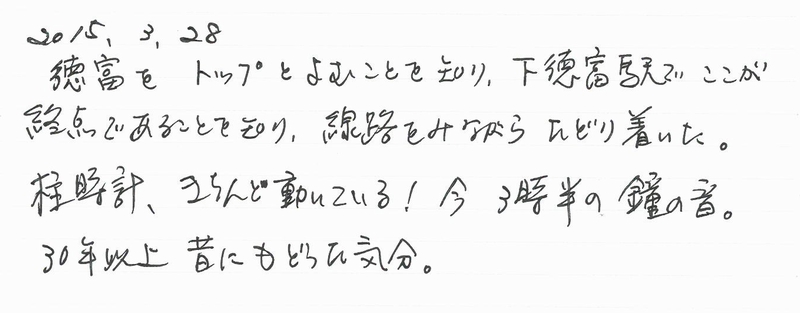 2015, 3, 28
徳富を トップとよむことを知り、下徳富駅でここが
終点であることを知り、線路をみながら たどり着いた。
柱時計、きちんと動いている! 今 3時半の 鐘の音。
30年以上 昔にもどった気分。